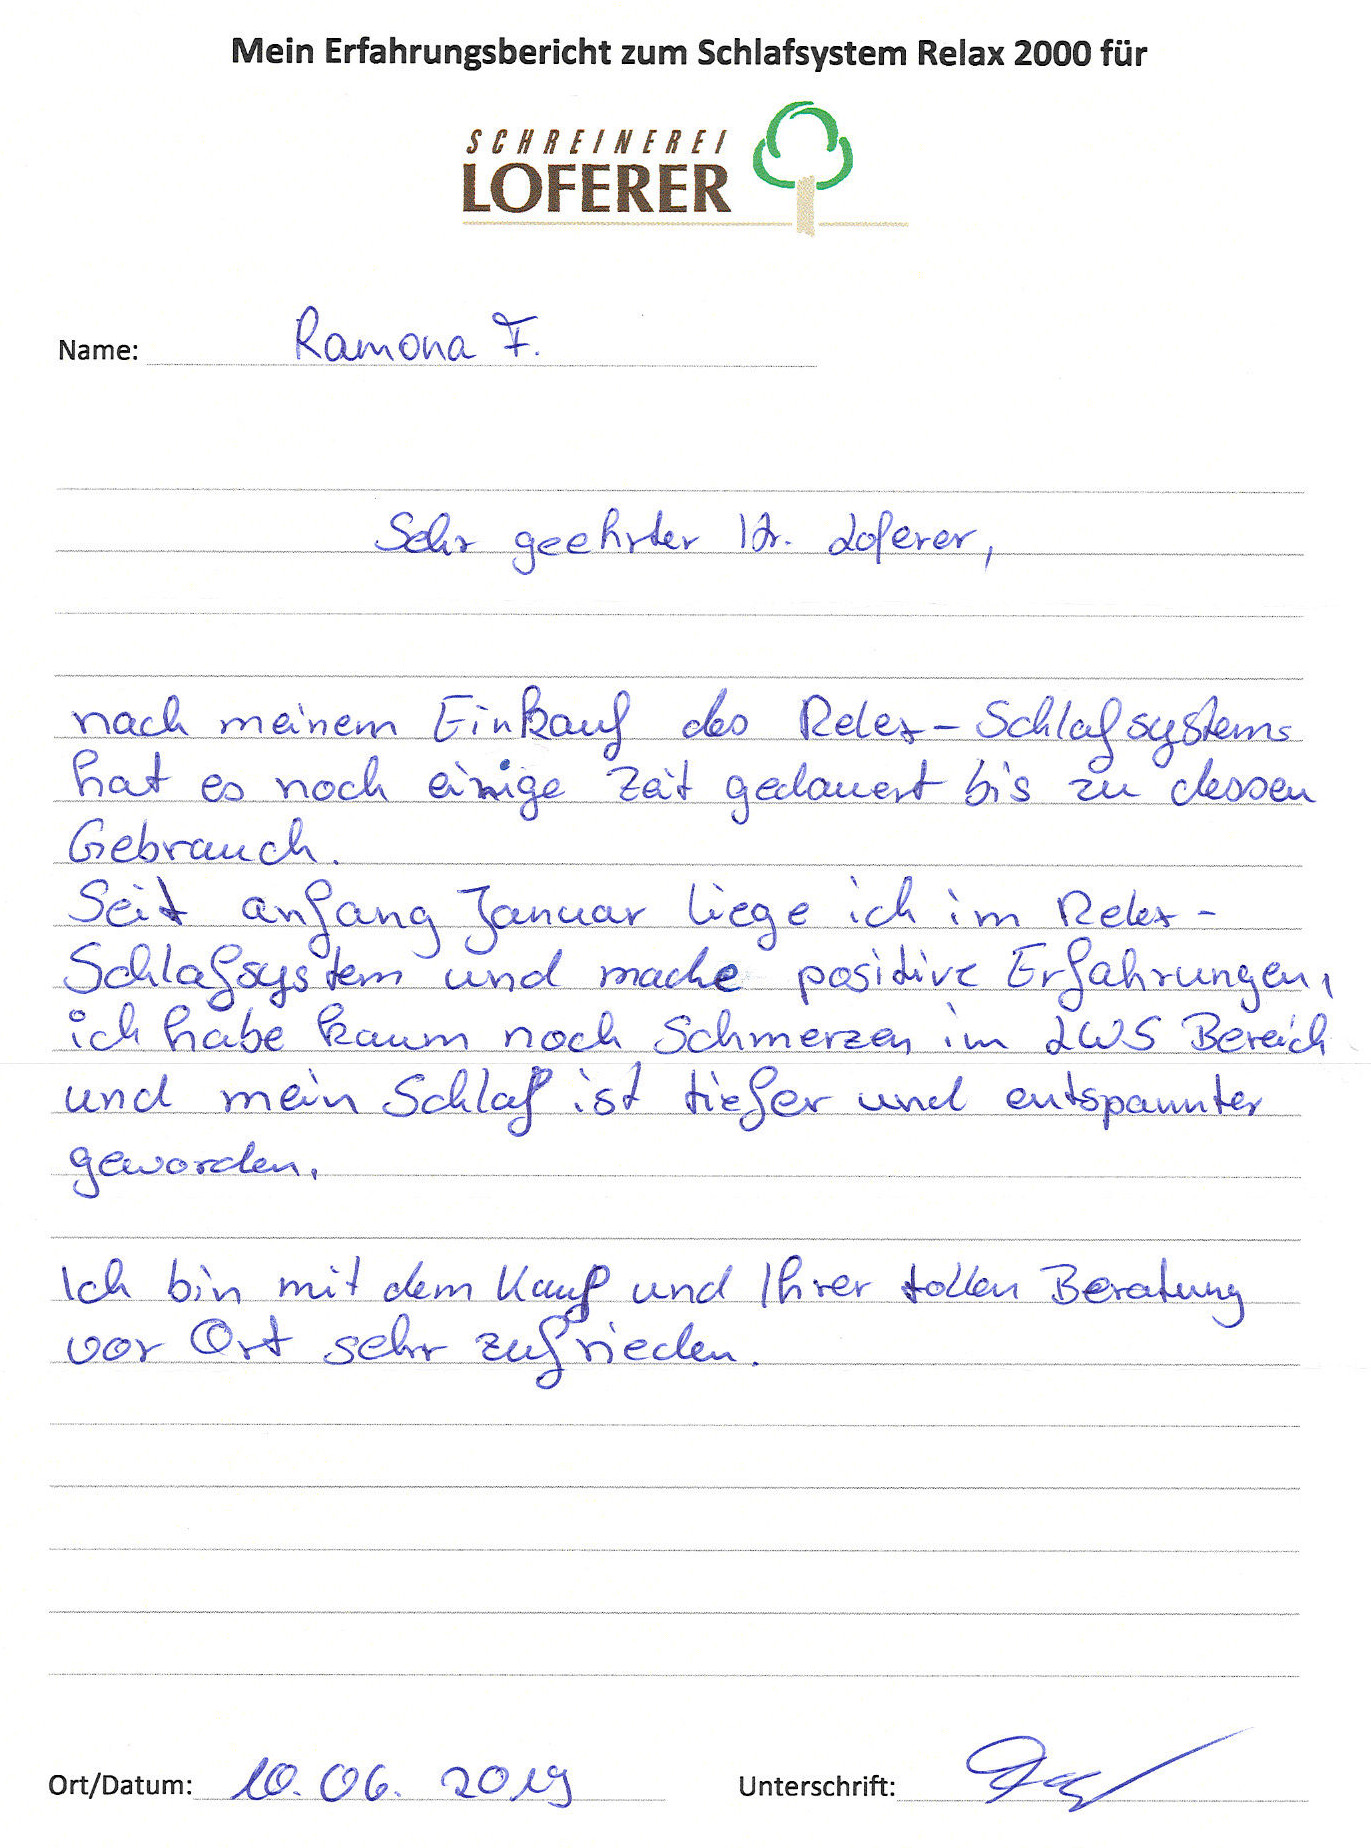 Mein Erfahrungsbericht zum Schlafsystem Relax 2000 für
SCHREINEREI
LOFERER
Name: Ramona F.
Sehr geehrter Hr. Loferer,
nach meinem Einkauf des Relax-Schlafsystems
hat es noch einige Zeit gedauert bis zu dessen
Gebrauch.
Seit anfang Januar liege ich im Relax-
Schlafsystem und mache positive Erfahrungen,
ich habe kaum noch Schmerzen im LWS Bereich
und mein Schlaf ist tiefer und entspannter
geworden.
Ich bin mit dem Kauf und Ihrer tollen Beratung
vor Ort sehr zufrieden.
Ort/Datum: 10.06.2019 Unterschrift: